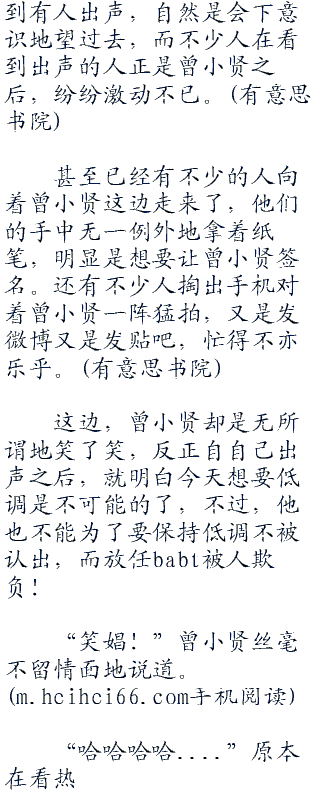 到有人出声，自然是会下意
识地望过去，而不少人在看
到出声的人正是曾小贤之
后，纷纷激动不已。(有意思
书院)
甚至已经有不少的人向
着曾小贤这边走来了，他们
的手中无一例外地拿着纸
笔，明显是想要让曾小贤签
名。还有不少人掏出手机对
着曾小贤一阵猛拍，又是发
微博又是发贴吧，忙得不亦
乐乎。(有意思书院)
这边，曾小贤却是无所
谓地笑了笑，反正自自己出
声之后，就明白今天想要低
调是不可能的了，不过，他
也不能为了要保持低调不被
认出，而放任babt被人欺
负！
“笑娼！”曾小贤丝毫
不留情面地说道。
(m.hcihci66.com手机阅读)
“哈哈哈哈....”原本
在看热